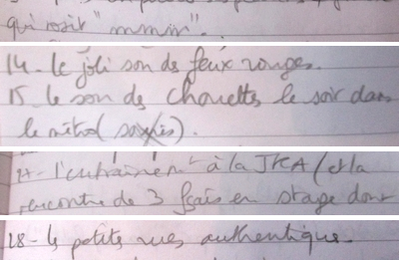 qui rosit "mmm".
14 - le joli son des feux rouges.
15 le son des chouettes le soir dans
le métro ( ).
17 - l'entraînemt à la JKA (et la
rencontre de 3 frçais en stage dont
18 - ls petites rues authentique.